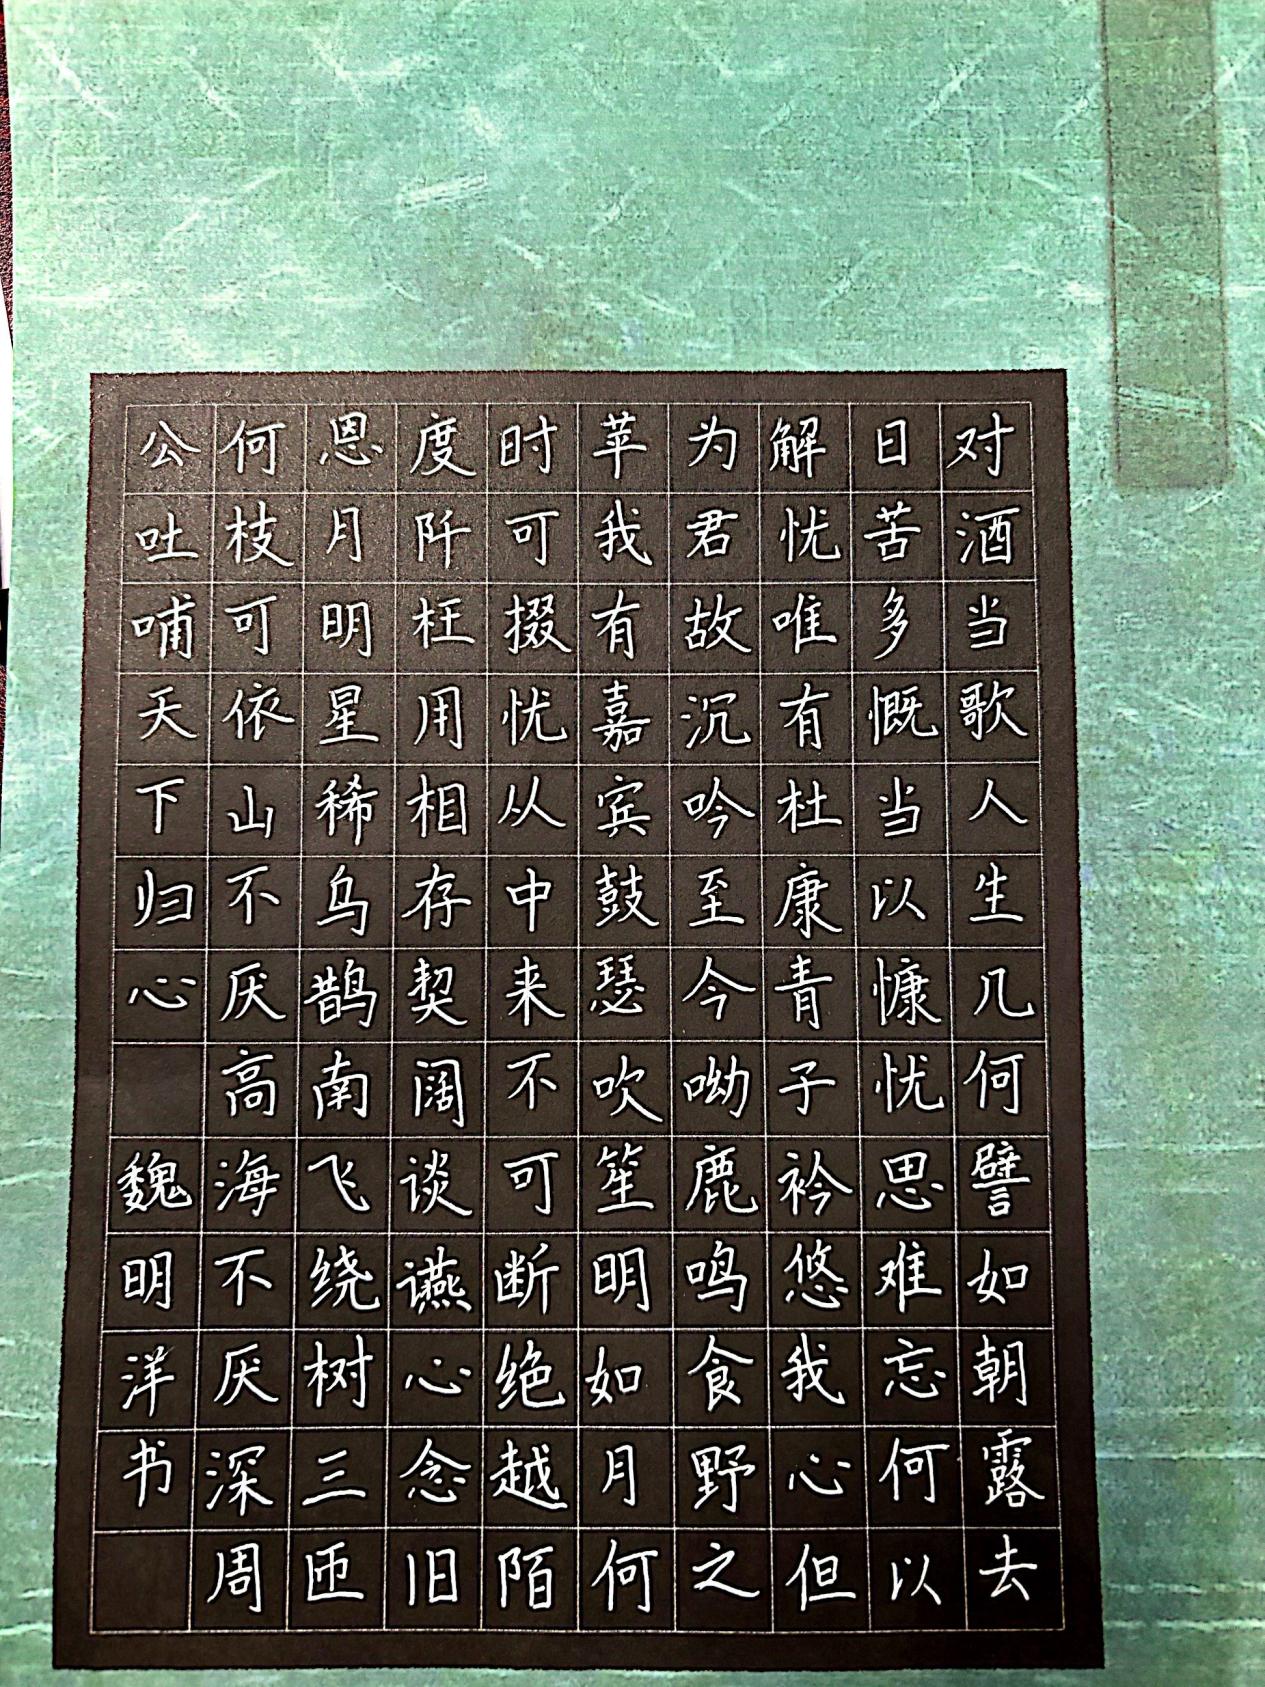 对酒当歌人生几何譬如朝露去
日苦多慨当以慷忧思难忘何以
解忧唯有杜康青子衿悠我心但
为君故沉吟至今呦鹿鸣食野之
苹我有嘉宾鼓瑟吹笙明如月何
时可掇忧从中来不可断绝越陌
度阡枉用相存契阔谈䜩心念旧
恩月明星稀乌鹊南飞绕树三匝
何枝可依山不厌高海不厌深周
公吐哺天下归心 魏明洋书